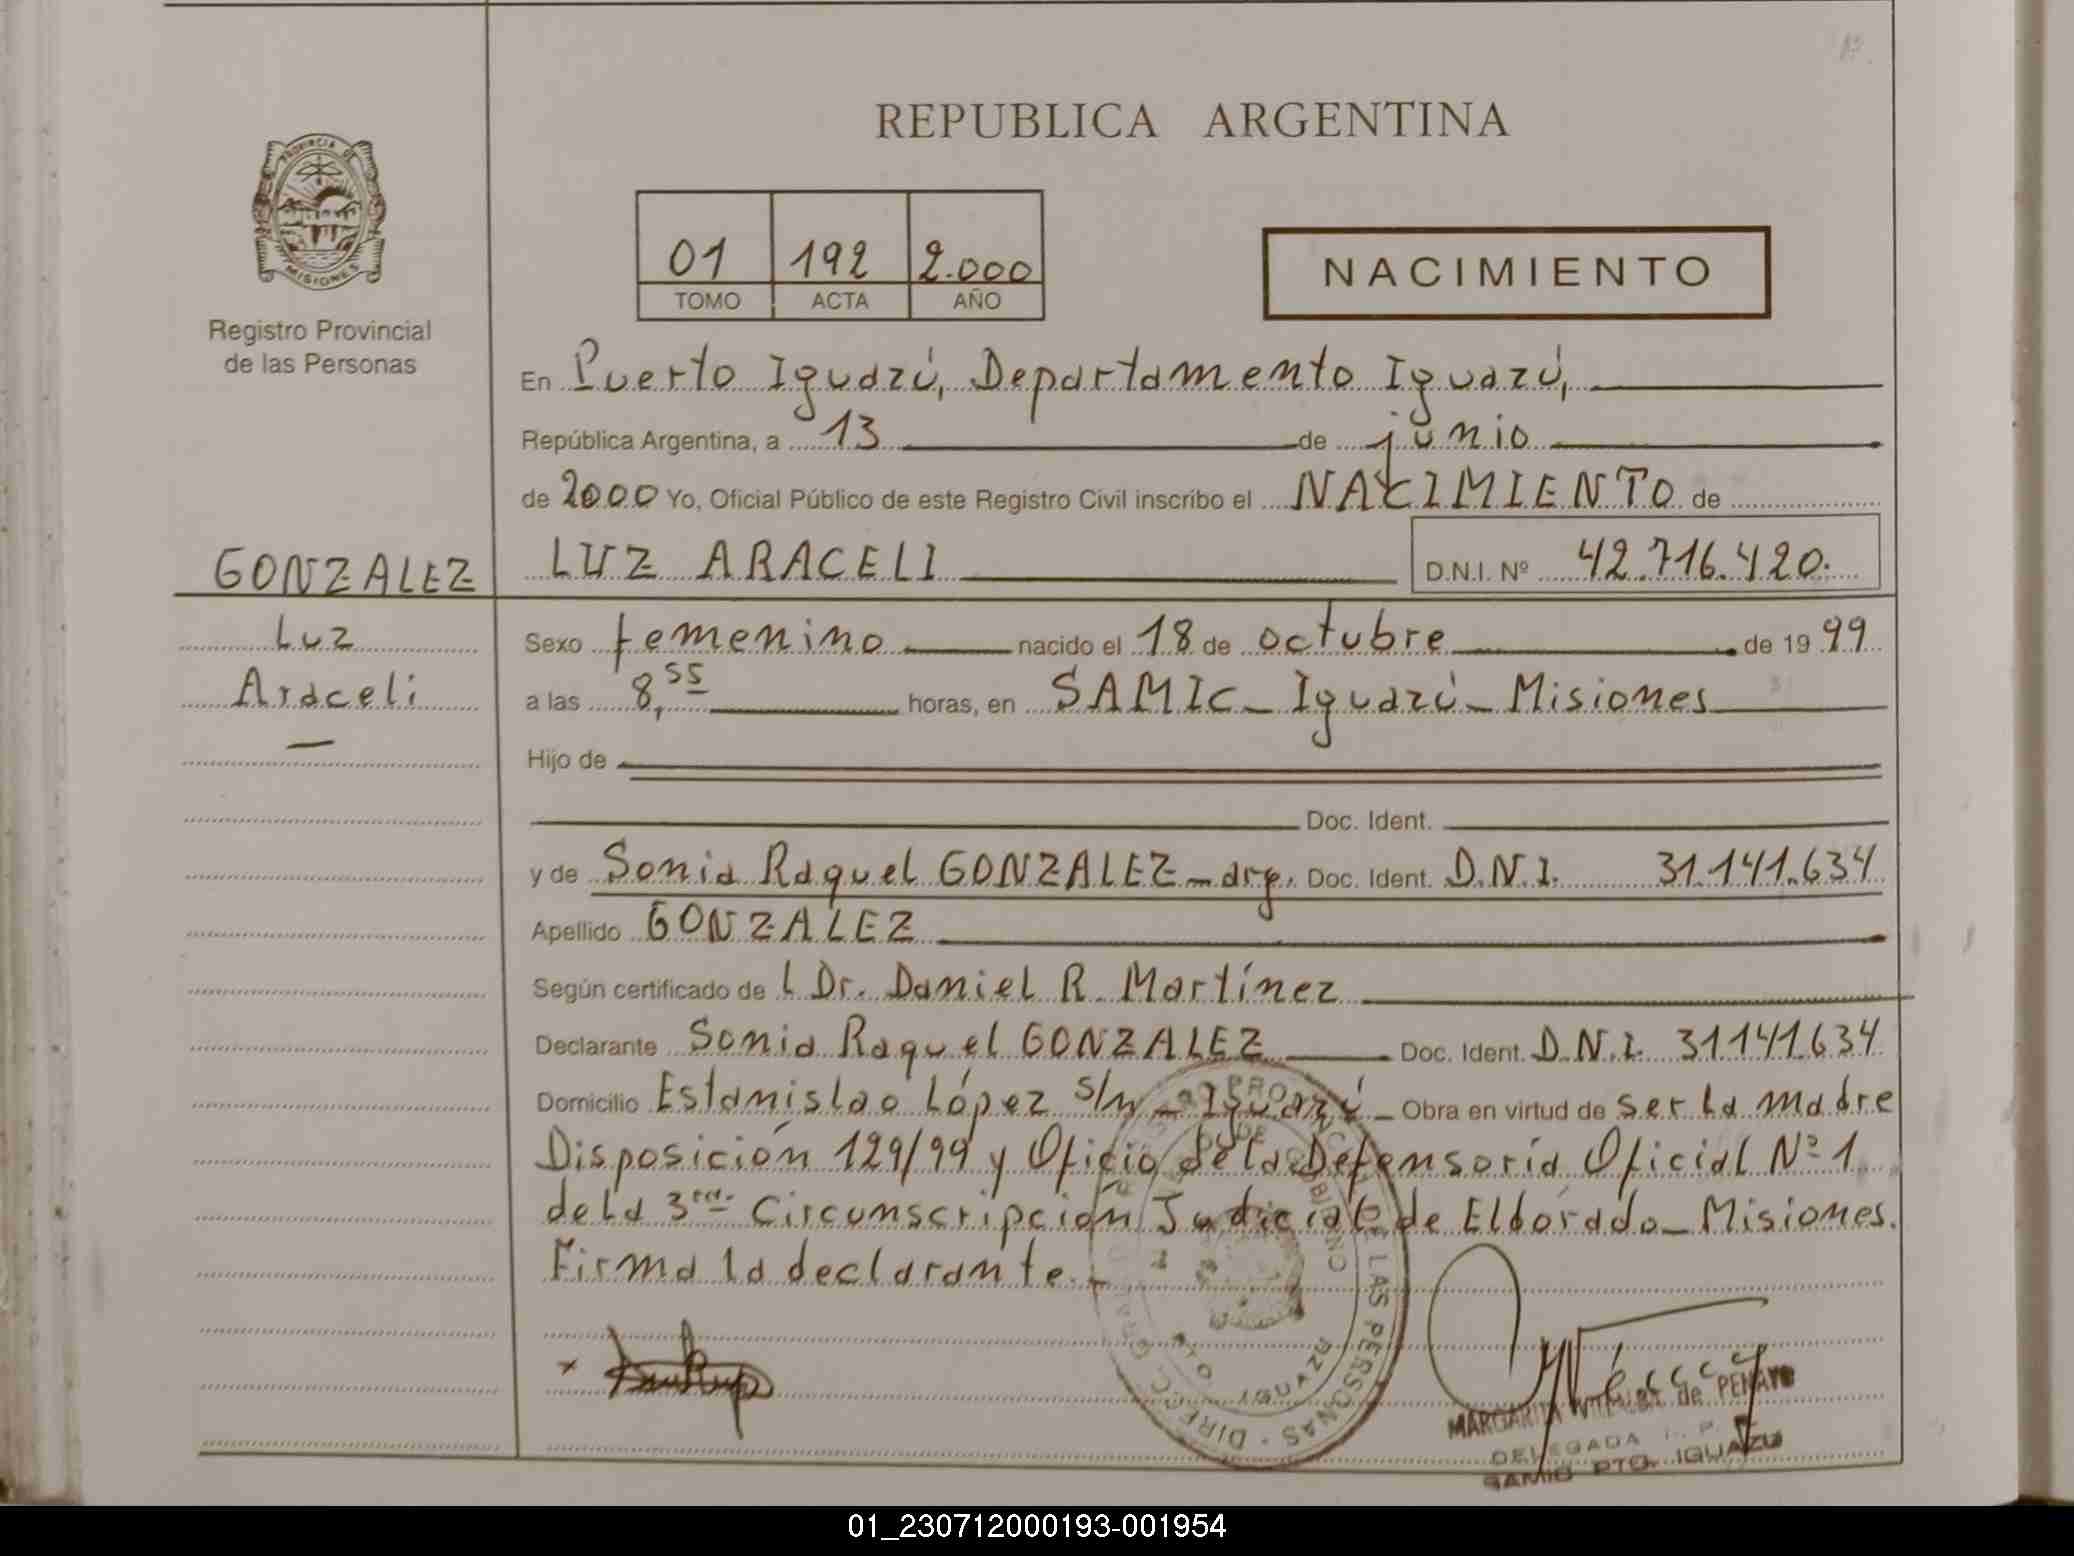 REPUBLICA ARGENTINA
PROVINCIA DE
MISIONES
Registro Provincial
de las Personas
01 192 2.000
TOMO ACTA AÑO
NACIMIENTO
En Puerto Iguazú, Departamento Iguazú,
República Argentina, a 13 de junio
de 2000 Yo, Oficial Público de este Registro Civil inscribo el NACIMIENTO de
GONZALEZ LUZ ARACELI D.N.I. Nº 42.716.420.
Luz Sexo femenino nacido el 18 de octubre de 19 99
Araceli a las 8,55 horas, en SAMIC_ Iguazú_ Misiones
Hijo de
Doc. Ident.
y de Sonia Raquel GONZALEZ_arg. Doc. Ident. D.N.I. 31.141.634
Apellido GONZALEZ
Según certificado de l Dr. Daniel R. Martínez
Declarante Sonia Raquel GONZALEZ Doc. Ident. D.N.I. 31.141.634
Domicilio Estanislao López s/n _ Iguazú _ Obra en virtud de ser la madre
Disposición 129/99 y Oficio de la Defensoría Oficial Nº 1
de la 3ra. Circunscripción Judicial de Eldorado_ Misiones.
Firma la declarante._
DE LAS PERSONAS - DIREC
IGUAZU
MARGARITA de PENAYO
DELEGADA
SAMIC PTO. IGUAZU
01_230712000193-001954